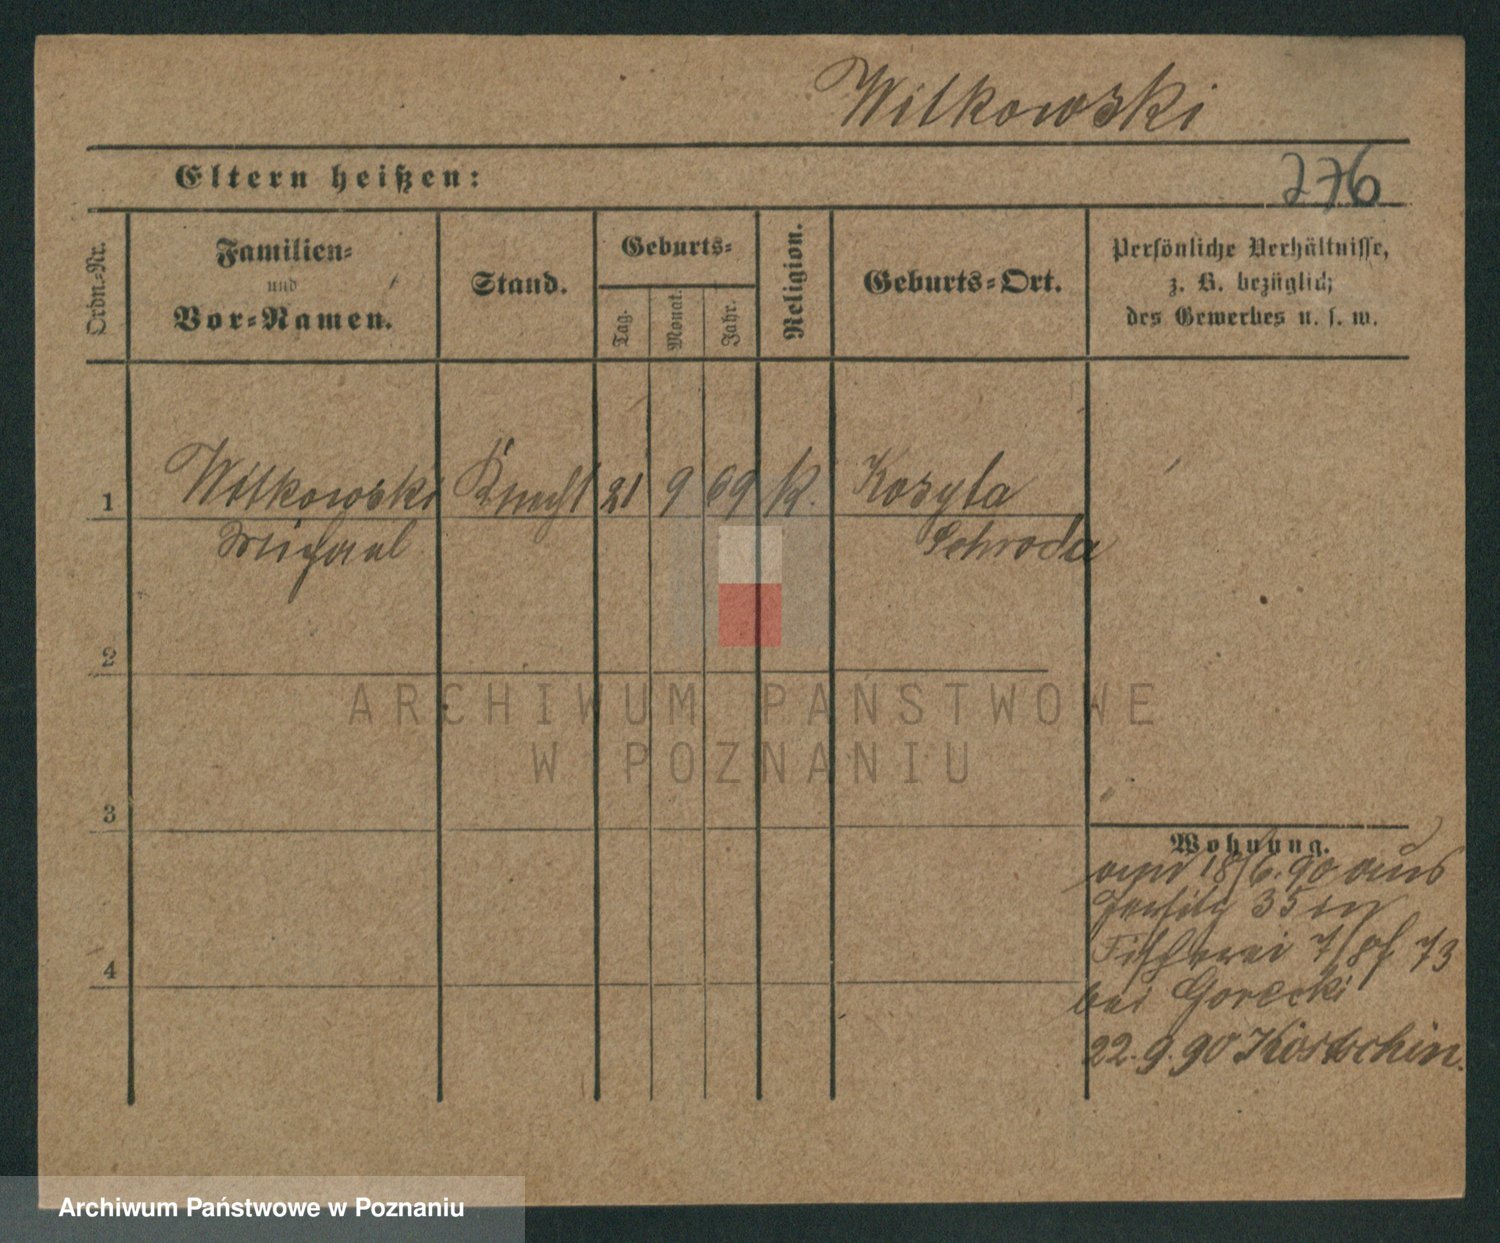 Wilkowski
Eltern heißen:
276
Ordn.-Nr.
Familien-
und
Vor-Namen.
Stand.
Geburts-
Tag.
Monat.
Jahr.
Religion.
Geburts-Ort.
Persönliche Verhältnisse,
z. B. bezüglich
des Gewerbes u. s. w.
1 Wilkowski Knecht 21 9 69 K.
Michael Schroda
2
ARCHIWUM PAŃSTWOWE
W POZNANIU
3
Wohnung.
18/6.90 aus
35 in
Fischerei 7/8 73
bei Gorecki
4
22.9.90 Kostschin.
Archiwum Państwowe w Poznaniu